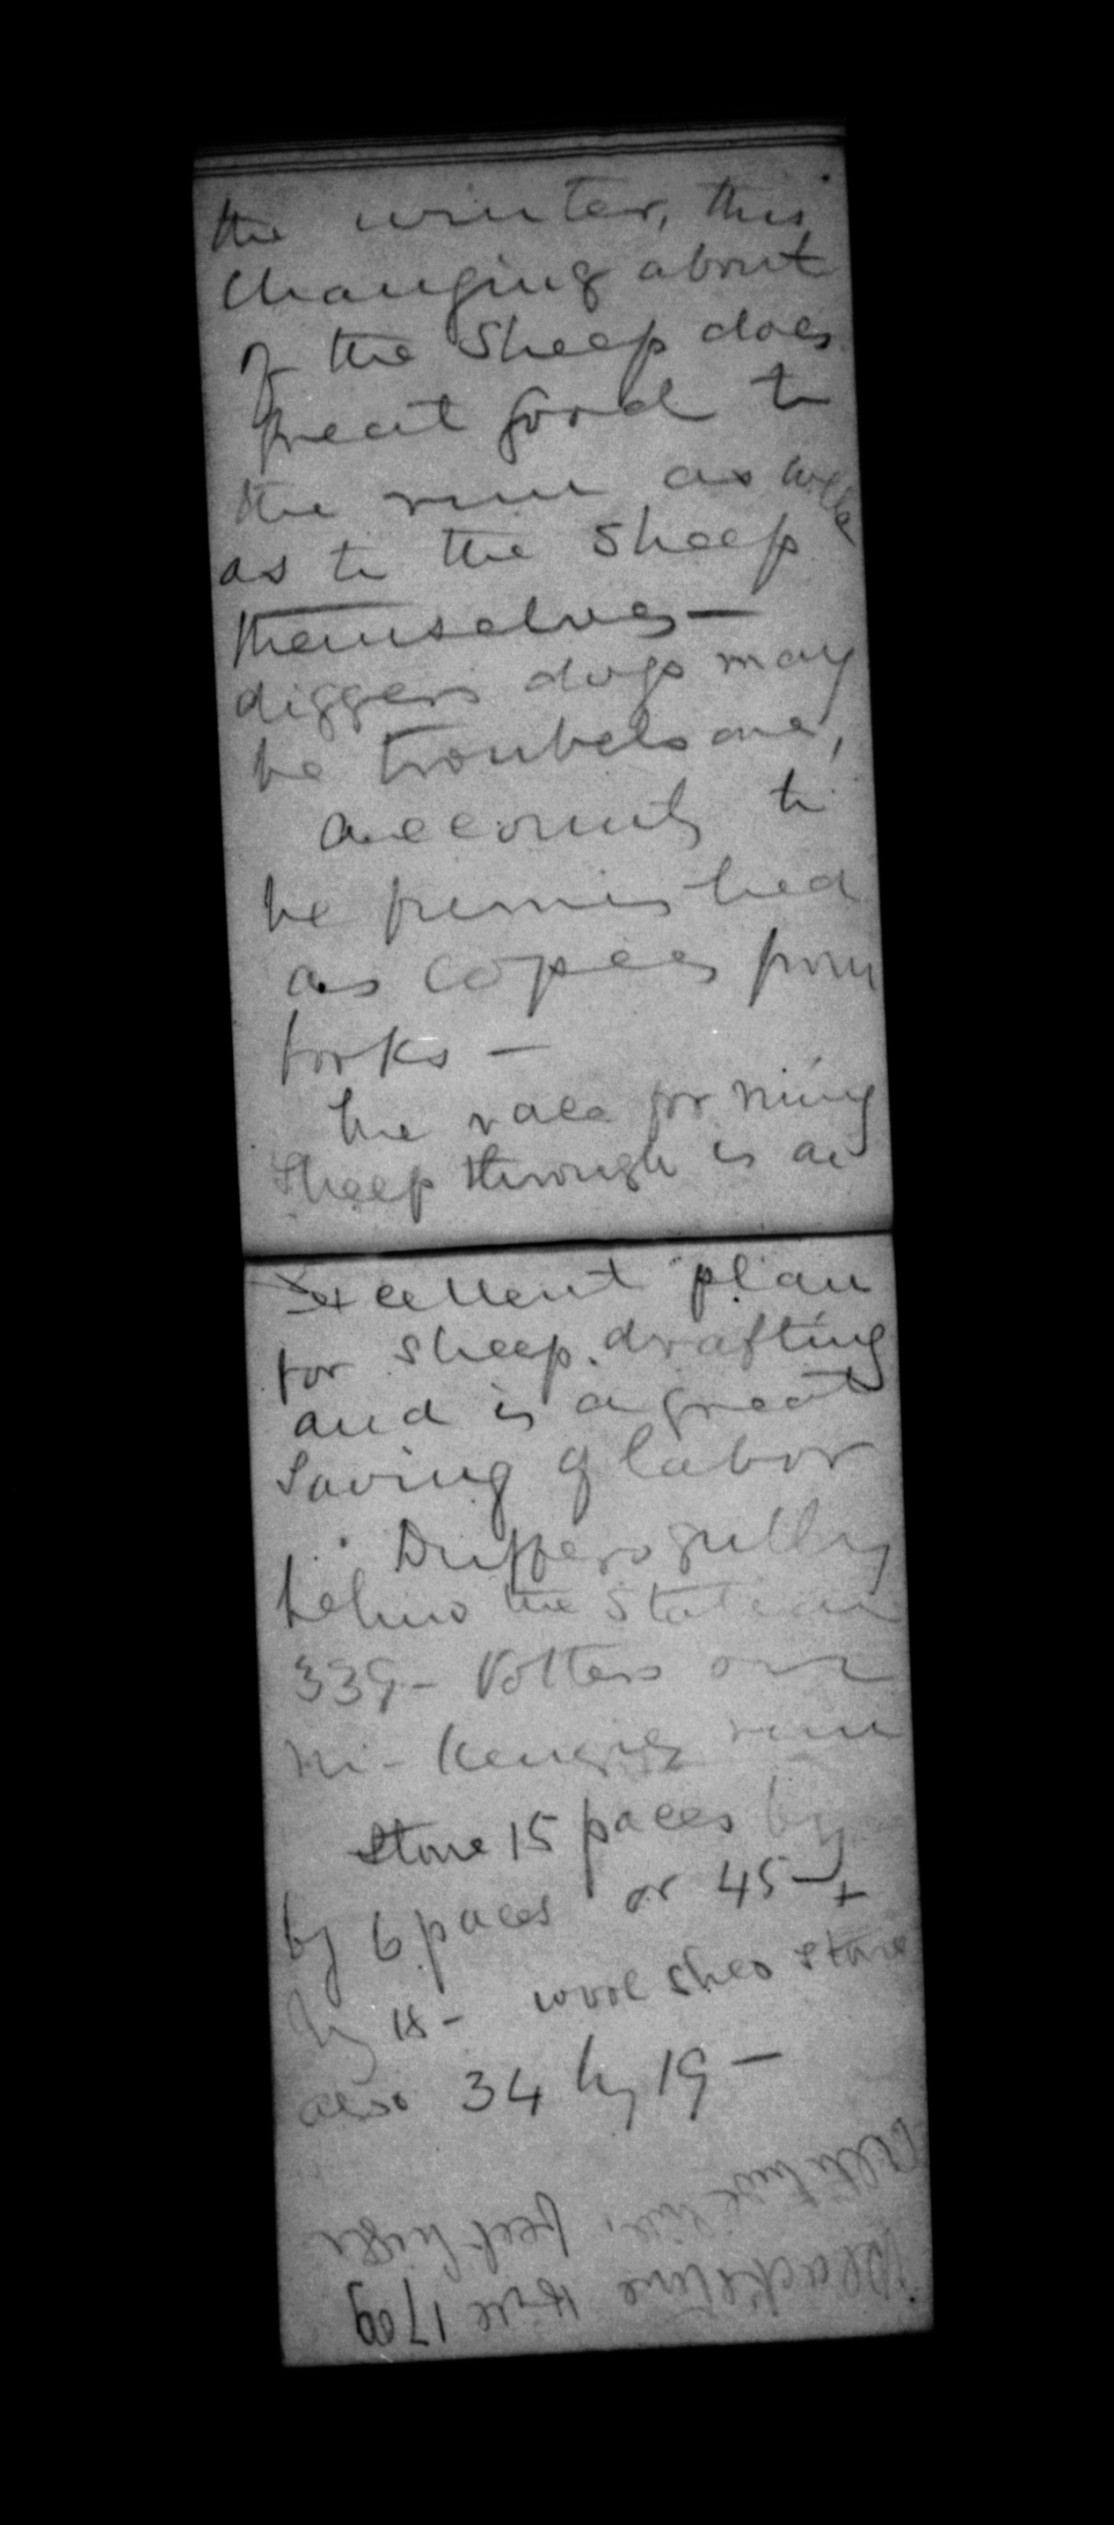 the winter, this
changing about
of the Sheep does
great good to
the run as well
as to the Sheep
themselves —
diggers dogs may
be troubelsome,
accounts to
be furnished
as copees from
books —
the race for runing
Sheep through is an
excellent plan
for sheep drafting
and is a great
saving of labor
Duffers gulley
behind the Station
339 - Potters
run
Store 15 paces by
by 6 paces or 45 +
by 18 - wool shed store
also 34 by 19 —
feet high
1709